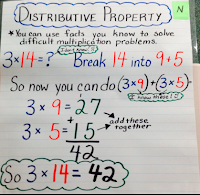 Distributive Property
N
*You can use facts you know to solve
difficult multiplication problems.
I don't know it
3×14=? Break 14 into 9+5
So now you can do (3×9)+(3×5)
I know these!
3 × 9 = 27
+
3 × 5 = 15
add these
together
42
So 3×14=42